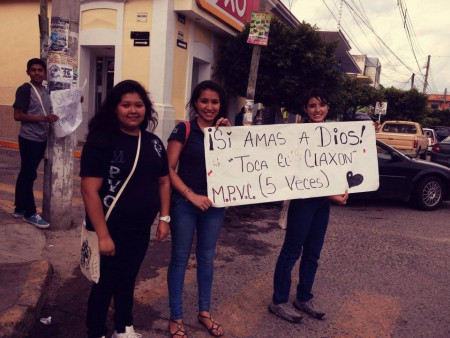 ¡Si AMAS A DIOS!
"TOCA EL CLAXON"
M.P.V.C. (5 Veces)
MPV